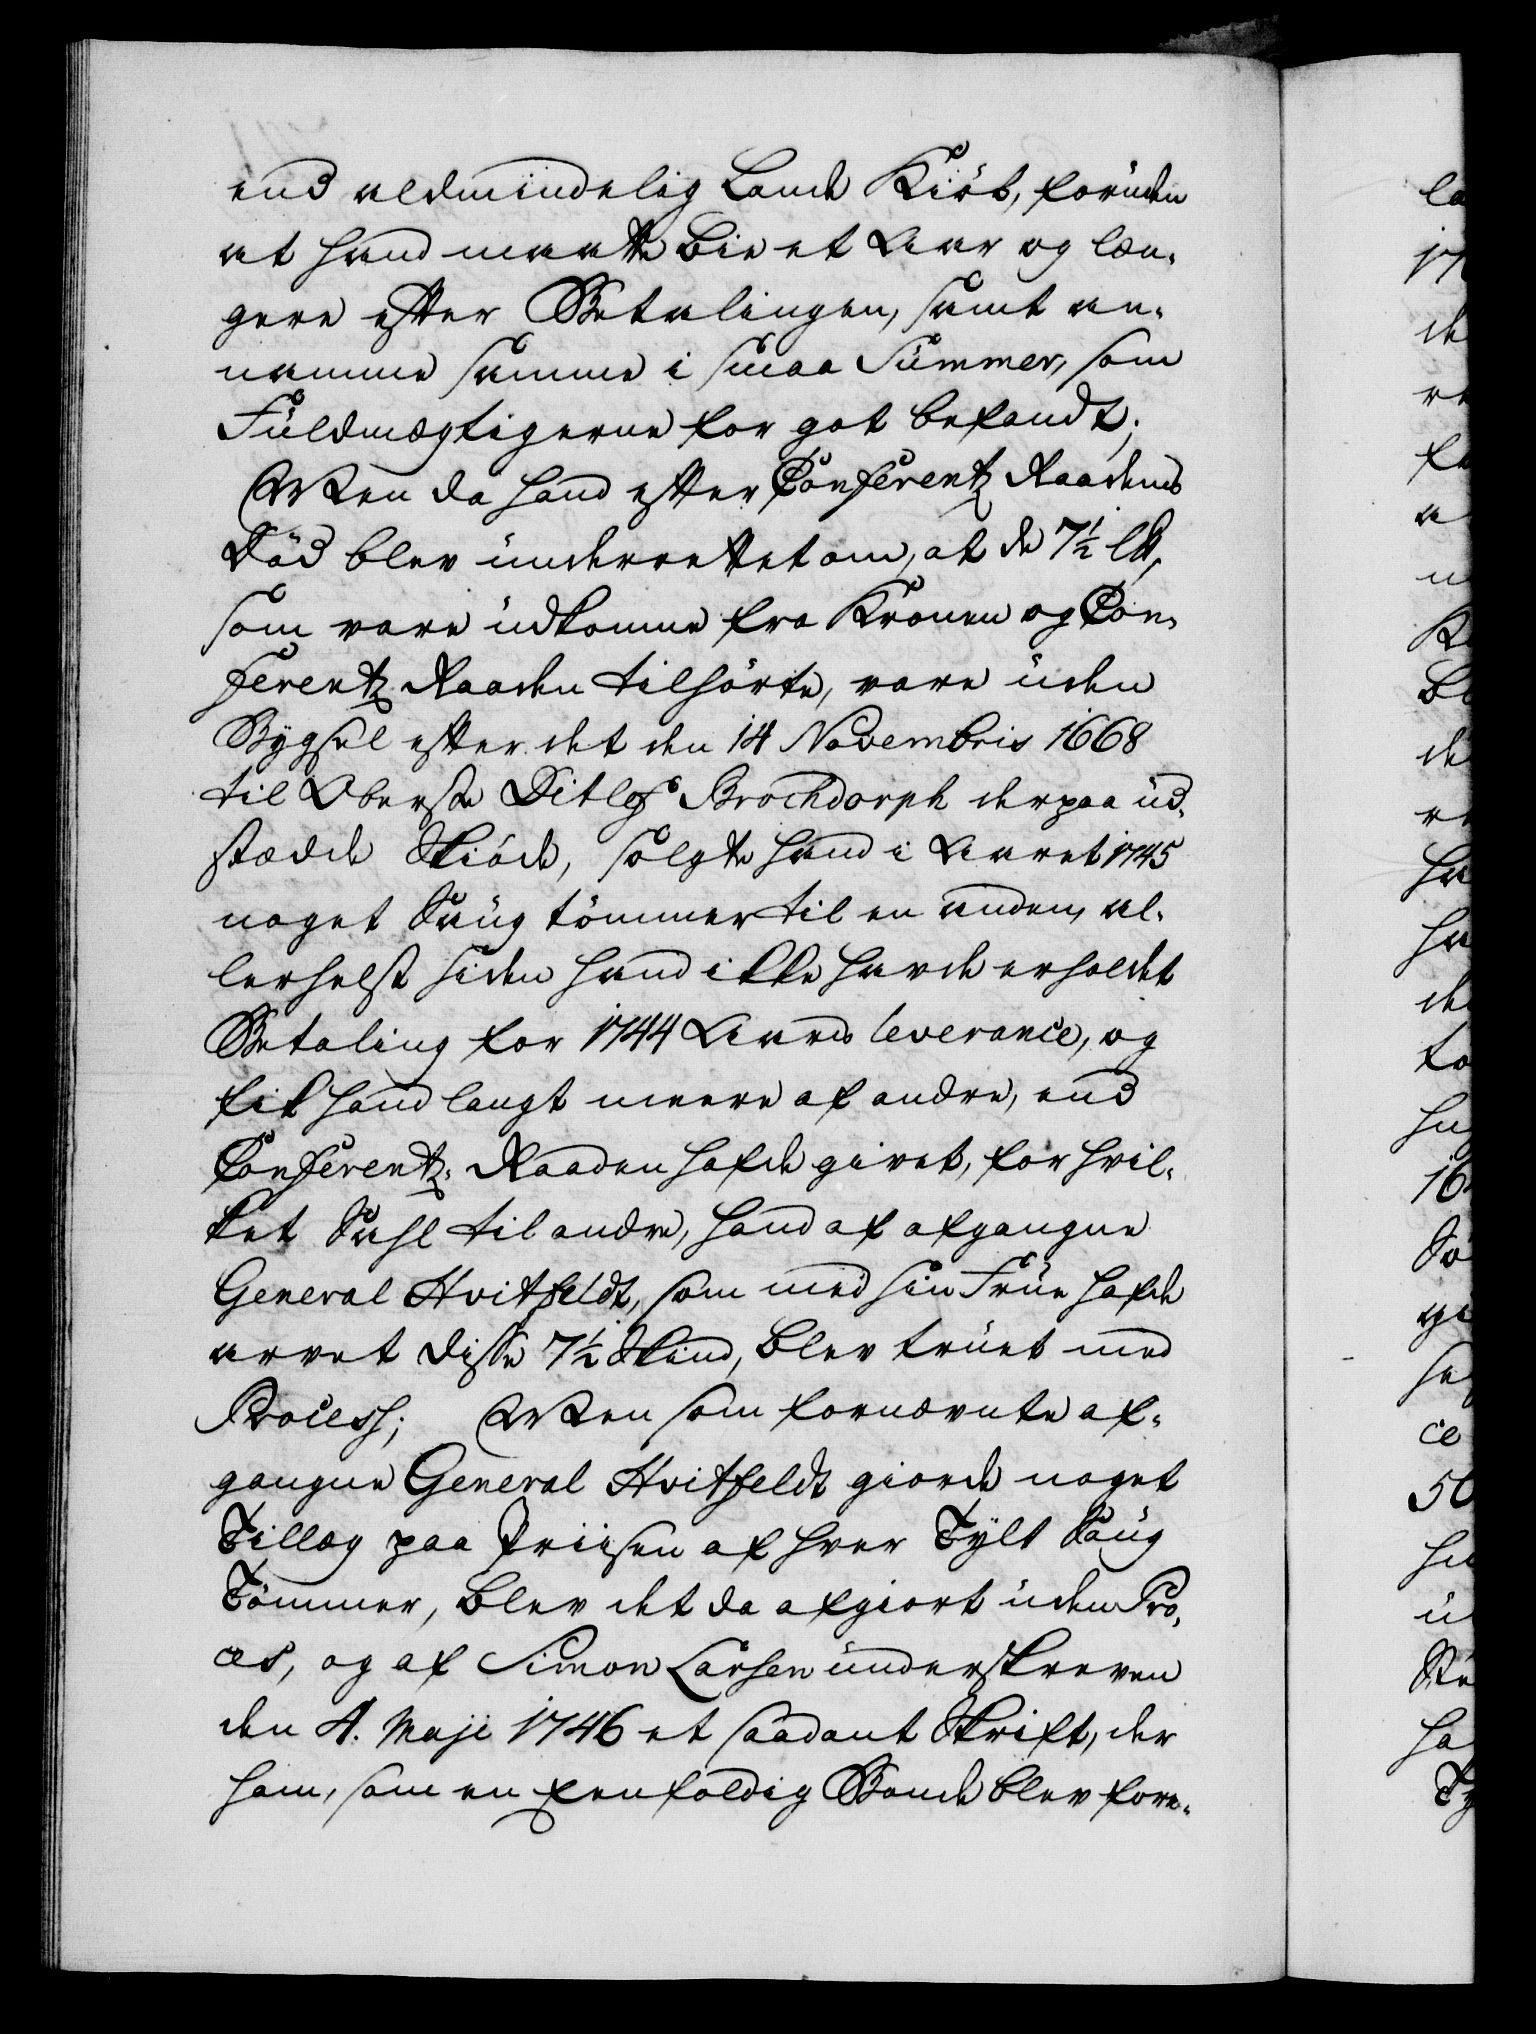 end aldmindelig Lands Kiöb, foruden
at hand maatte bie et Aar og læn-
gere effter Betalingen, samt an-
namme samme i smaa Summer, som
Fuldmægtigerne for got befandt;
Men da hand effter Conferentz Raadens
Död blev underrettet om, at de 7½
som vare udkomne fra Kronen og Con-
ferentz Raaden tilhörte, vare uden
Bygsel effter det den 14 Novembris 1668
til Oberste Ditlef Brochdorph derpaa ud-
stædde Skiöde, solgte hand i Aaret 1745
noget Saug tömmer til en anden, al-
lerhelst siden hand ikke havde erholdet
Betaling for 1744 Aars leverance, og
fik hand langt meere af andre, end
Conferentz-Raaden hafde givet, for hvil-
ket Sahl til andre, hand af afgangne
General Hvitfeldt, som med sin Frue hafde
arvet disse 7½ Skind, blev truet med
Process; Men som fornævnte af-
gangne General Hvitfeldt giorde noget
Tillæg paa Priisen af hver Tylt Saug
Tömmer, blev det da afgiort uden Pro-
ces, og af Simon Larsen underskreven
den 4. Maji 1746 et saadant Skrift, der
ham, som en eenfoldig Bonde blev fore-